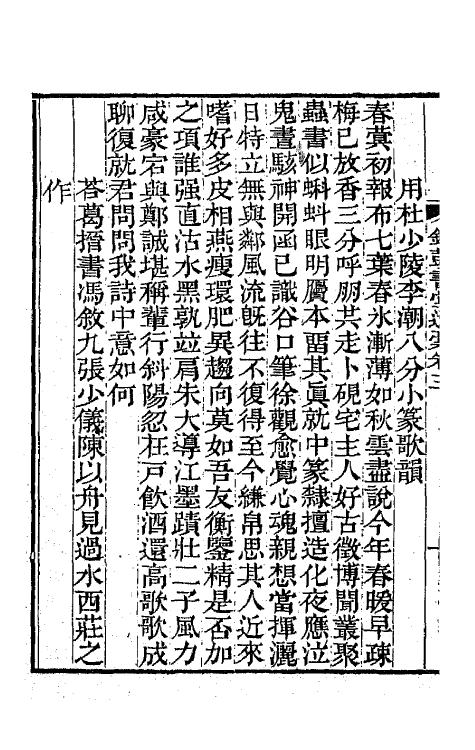 用杜少陵李潮八分小篆歌韻
春蓂初報布七葉春氷漸薄如秋雲盡說今年春暖早疎
梅已放香三分呼朋共走卜硯宅主人好古徵博聞叢聚
蟲書似蝌蚪眼明贗本畱其眞就中篆隸擅造化夜應泣
鬼晝駭神開函已識谷口筆徐觀愈覺心魂親想當揮灑
日特立無與鄰風流旣往不復得至今縑帛思其人近來
嗜好多皮相燕瘦環肥異趨向莫如吾友衡鑒精是否加
之項誰强直沽水黑孰竝肩朱大導江墨蹟壯二子風力
咸豪宕與鄭誠堪稱輩行斜陽忽在戸飮酒還高歌歌成
聊復就君問問我詩中意如何
荅葛搢書馮敘九張少儀陳以舟見過水西莊之
作